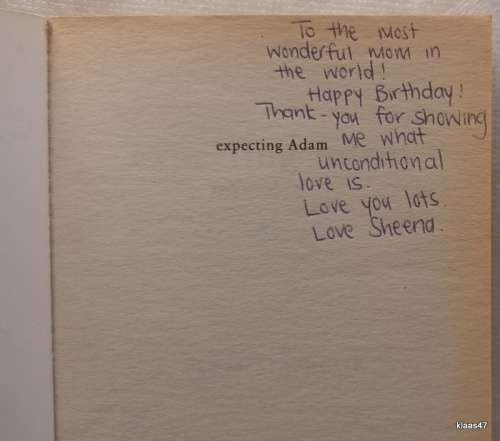 To the most
wonderful mom in
the world!
Happy Birthday!
Thank-you for showing
expecting Adam
me what
unconditional
love is.
Love you lots.
Love Sheena.
klaas47